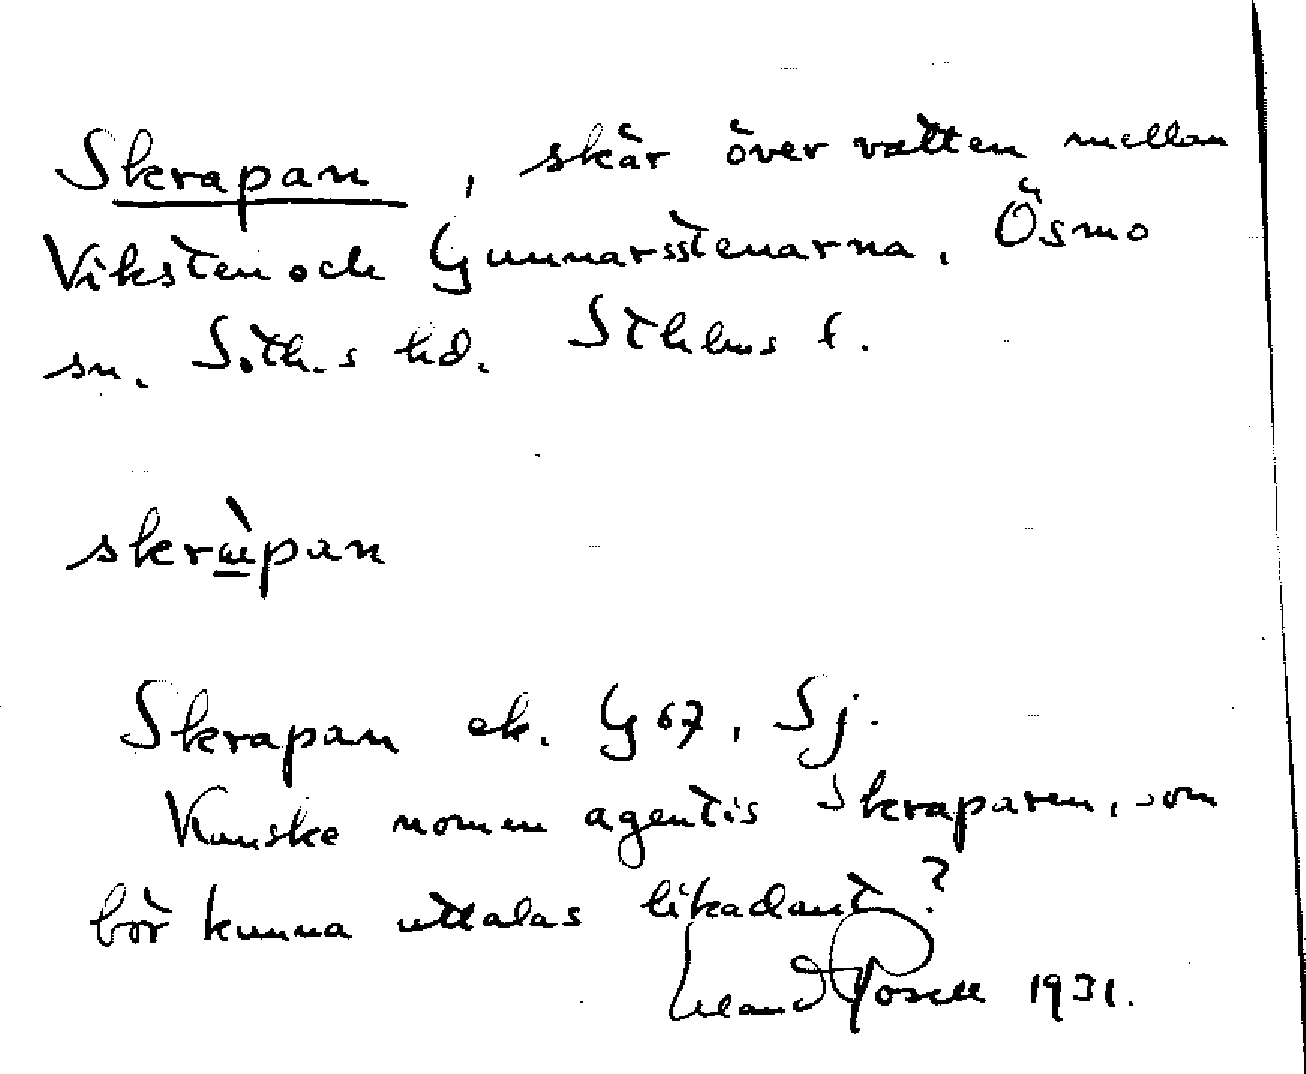 Skrapan, skär över vatten mellan
Viksten och Gunnarsstenarna. Ösmo
sn. Soth.s hd. Sthlms l.
skràpan
Skrapan ek. G 67, Sj.
Kanske nomen agentis Skraparen, som
bör kunna uttalas likadant?
Erland Rosell 1931.